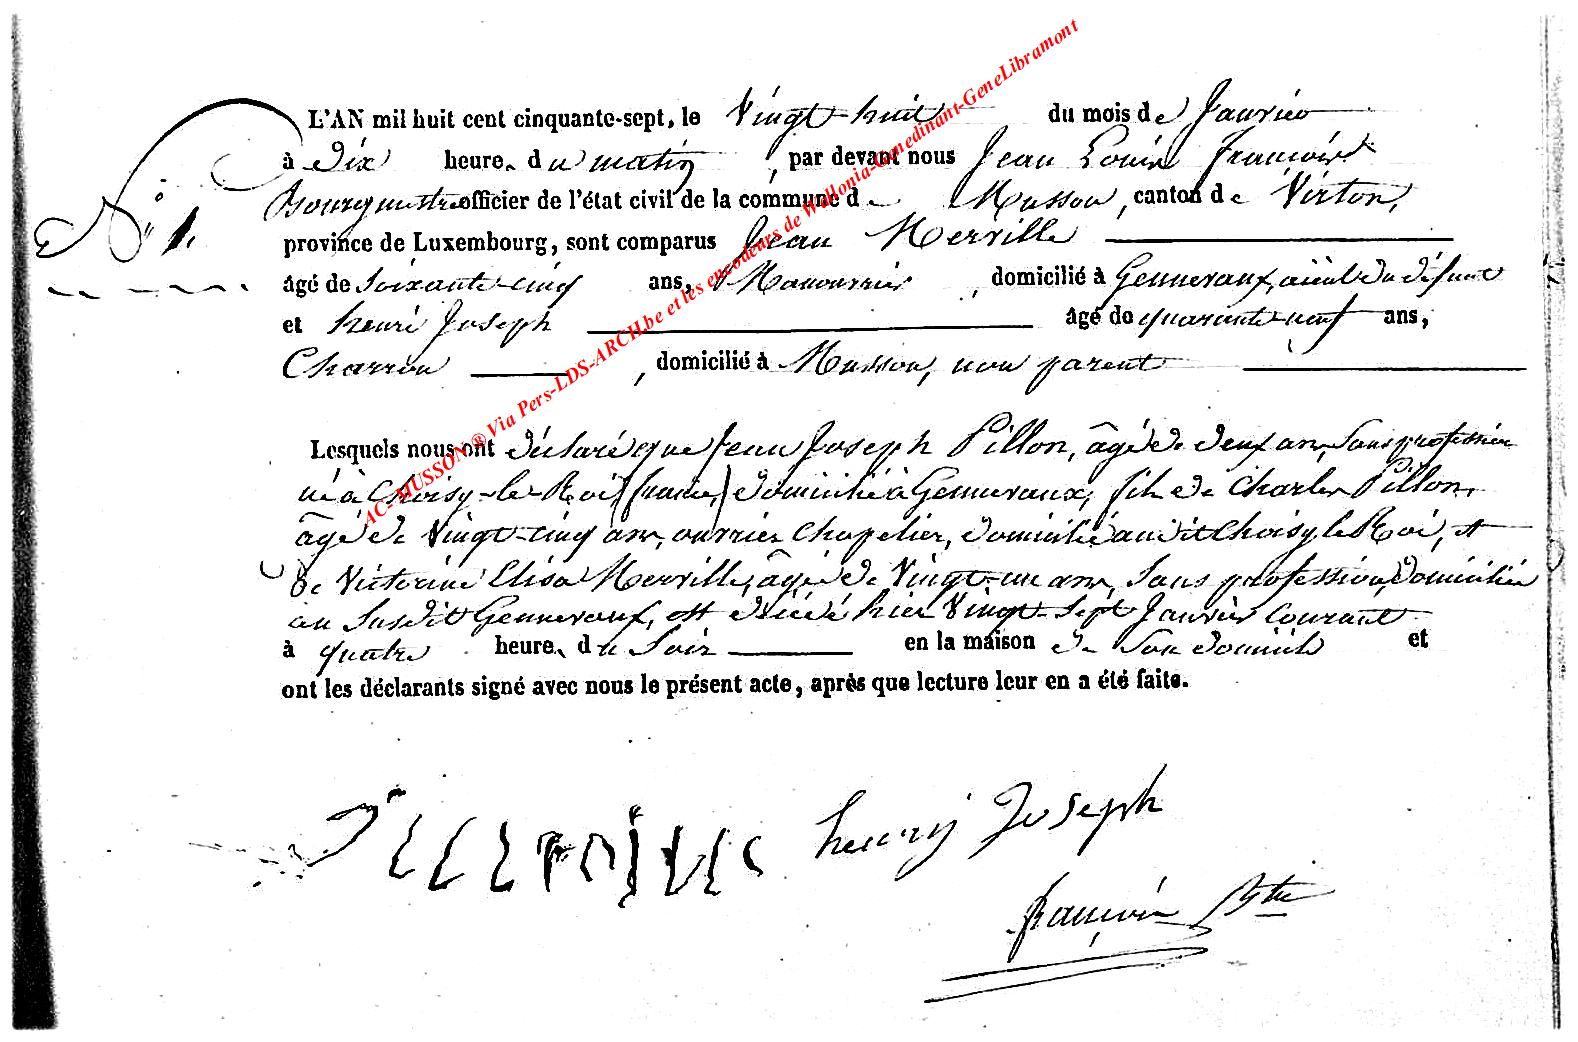 L'AN mil huit cent cinquante-sept, le Vingt-huit du mois de Janvier
à Dix heure. du matin, par devant nous Jean Louis François
N° 1. Bourgmestre officier de l'état civil de la commune de Musson, canton de Virton,
province de Luxembourg, sont comparus Jean Merville
âgé de soixante-cinq ans, Manouvrier, domicilié à Gennevaux, aïeul du défunt
et henri Joseph âgé de quarante-neuf ans,
Charron, domicilié à Musson, non parent
Lesquels nous ont déclaré que Jean Joseph Pillon, âgé de deux ans, sans profession
né à Choisy-le-Roi (france) domicilié à Gennevaux, fils de Charles Pillon,
âgé de Vingt-cinq ans, ouvrier Chapelier, domicilié au dit Choisy le Roi, et
de Victorine Elisa Merville, âgée de Vingt-un ans, sans profession, domiciliée
au susdit Gennevaux, est décédé hier Vingt-sept Janvier courant
à quatre heure. du soir en la maison de son domicile et
ont les déclarants signé avec nous le présent acte, après que lecture leur en a été faite.
henry Joseph
françois Bgtre
AC-MUSSON ® Via Pers-LDS-ARCH.be et les encodeurs de Wallonia-Genedinant-GeneLibramont